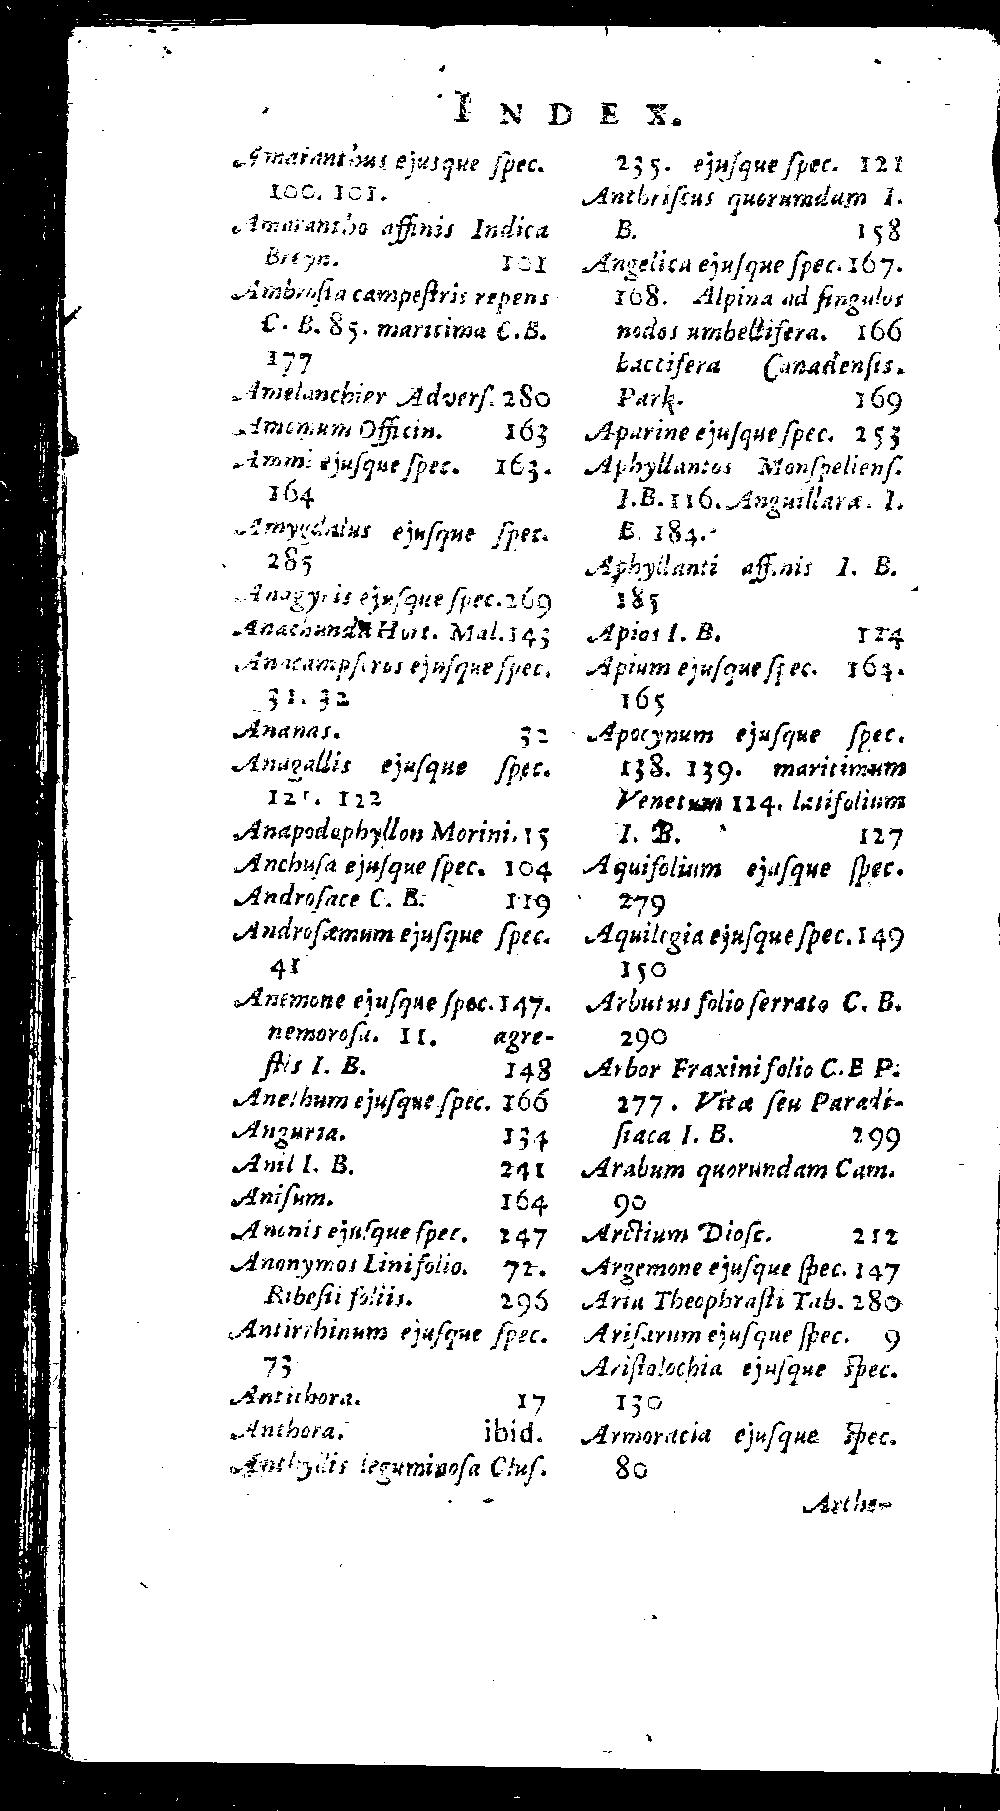 INDEX.
Amaranthus ejusque ſpec.
100. 101.
Amarantho affinis Indica
Breyn. 101
Ambroſia campeſtris repens
C. B. 85. maritima C.B.
177
Amelanchier Adverſ. 280
Amomum Officin. 163
Ammi ejuſque ſpec. 163.
164
Amygdalus ejuſque ſpec.
285
Anagyris ejuſque ſpec. 269
Anachunda Hort. Mal. 143
Anacampſeros ejuſque ſpec.
31. 32
Ananas. 32
Anagallis ejuſque ſpec.
121. 122
Anapodophyllon Morini. 15
Anchuſa ejuſque ſpec. 104
Androſace C. B. 119
Androſæmum ejuſque ſpec.
41
Anemone ejuſque ſpec. 147.
nemoroſa. 11. agre-
ſtis I. B. 148
Anethum ejuſque ſpec. 166
Anguria. 134
Anil I. B. 241
Aniſum. 164
Anonis ejuſque ſpec. 247
Anonymos Linifolio. 72.
Ribeſii foliis. 296
Antirrhinum ejuſque ſpec.
73
Antichora. 17
Anthora. ibid.
Anthyllis leguminoſa Cluſ.
235. ejuſque ſpec. 121
Anthriſcus quorumdum I.
B. 158
Angelica ejuſque ſpec. 167.
168. Alpina ad ſingulos
nodos umbellifera. 166
baccifera Canadenſis.
Park. 169
Aparine ejuſque ſpec. 253
Aphyllantos Monſpelienſ.
I.B. 116. Anguillaræ. I.
B. 184.
Aphyllanti affinis I. B.
185
Apios I. B. 124
Apium ejuſque ſpec. 163.
165
Apocynum ejuſque ſpec.
138. 139. maritimum
Venetum 124. latifolium
I. B. 127
Aquifolium ejuſque ſpec.
279
Aquilegia ejuſque ſpec. 149
150
Arbutus folio ſerrato C. B.
290
Arbor Fraxini folio C.B P.
277. Vitæ ſeu Paradi-
ſiaca I. B. 299
Arabum quorundam Cam.
90
Arctium Dioſc. 212
Argemone ejuſque ſpec. 147
Aria Theophraſti Tab. 280
Ariſarum ejuſque ſpec. 9
Ariſtolochia ejuſque ſpec.
130
Armoracia ejuſque ſpec.
80
Arthe-